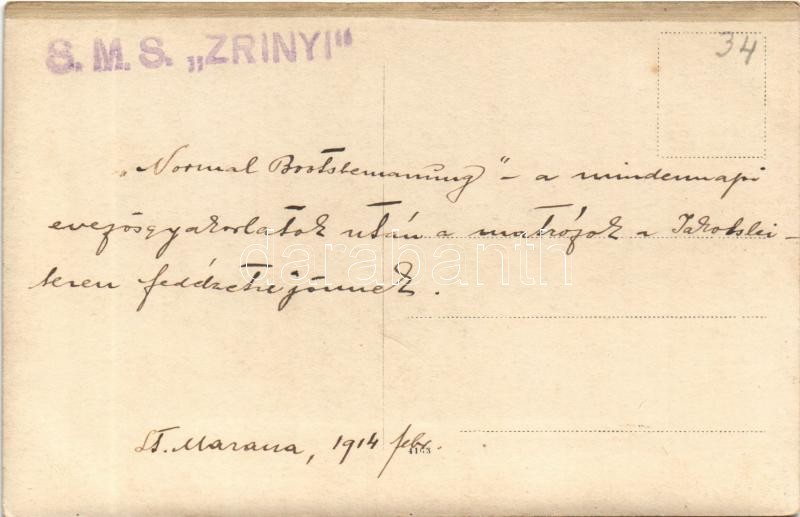 S. M. S. „ZRINYI“
34
„Normal Bootsbemannung“ - a mindennapi
evezősgyakorlatok után a matrózok a Jakobslei-
teren fedélzetre jönnek.
darabanth
St. Marana, 1914 febr.
4163